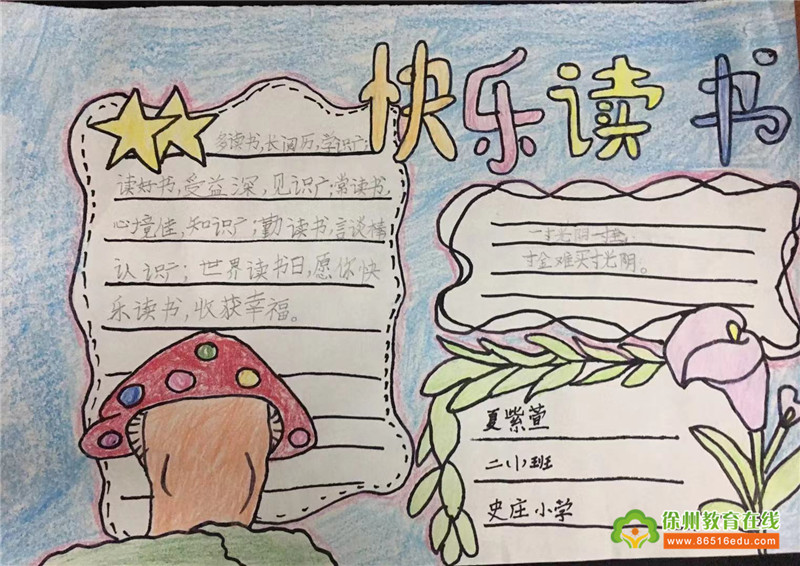 快乐读书
多读书,长阅历,学识广;
读好书,受益深,见识广;常读书,
心境佳,知识广;勤读书,言谈精
认识广;世界读书日,愿你快
乐读书,收获幸福。
一寸光阴一寸金,
寸金难买寸光阴。
夏紫萱
二(1)班
史庄小学
徐州教育在线
www.86516edu.com